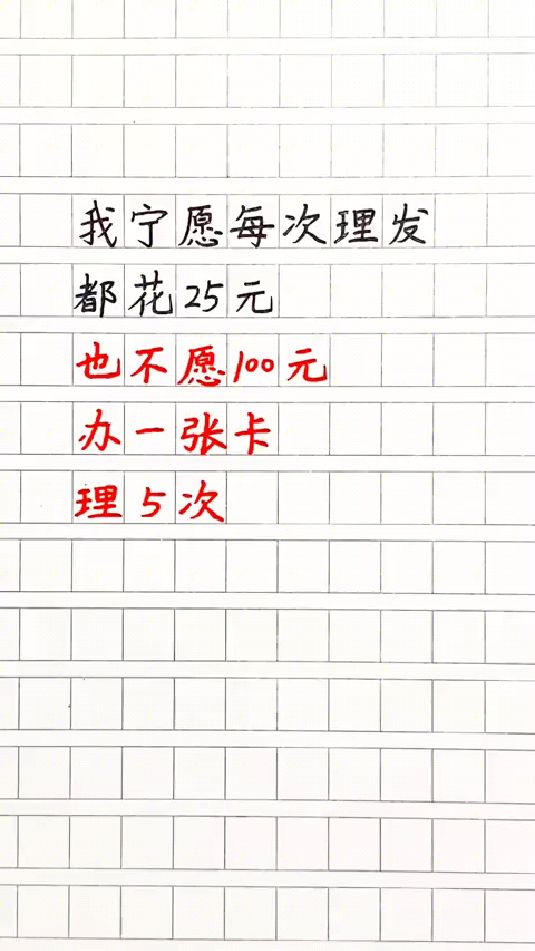 我宁愿每次理发
都花25元
也不愿100元
办一张卡
理5次